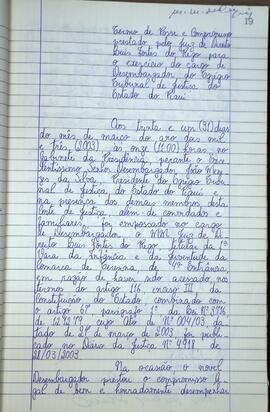 19
Termo de Posse e Compromisso
prestado pelo Juiz de Direito
Luis Fortes do Rêgo para
o exercício do cargo de
Desembargador do Egrégio
Tribunal de Justiça do
Estado do Piauí
Aos trinta e um (31) dias
do mês de março do ano dois mil
e três (2003) às onze (11:00) horas, no
Gabinete da Presidência, perante o Exce-
lentíssimo Senhor Desembargador João Mene-
zes da Silva, Presidente do Egrégio Tribu-
nal de Justiça do Estado do Piauí e na
presença dos demais membros desta
Corte de Justiça, além de convidados e
familiares, foi empossado no cargo
de Desembargador o MM. Juiz de Di-
reito Luis Fortes do Rêgo, titular da 1ª
Vara da Infância e da Juventude da
Comarca de Teresina, de 4ª Entrância,
em razão de haver sido acessado, nos
termos do artigo 116 inciso III da
Constituição do Estado combinado com
o artigo 67, parágrafo 1º da Lei Nº 3.716,
de 12.12.79, cujo Ato de Nº 004/03, da-
tado de 27 de março de 2003, foi publi-
cado no Diário da Justiça Nº 4.918 de
28/03/2003.
Na ocasião, o novel
Desembargador prestou o compromisso le-
gal de bem e honradamente desempenhar